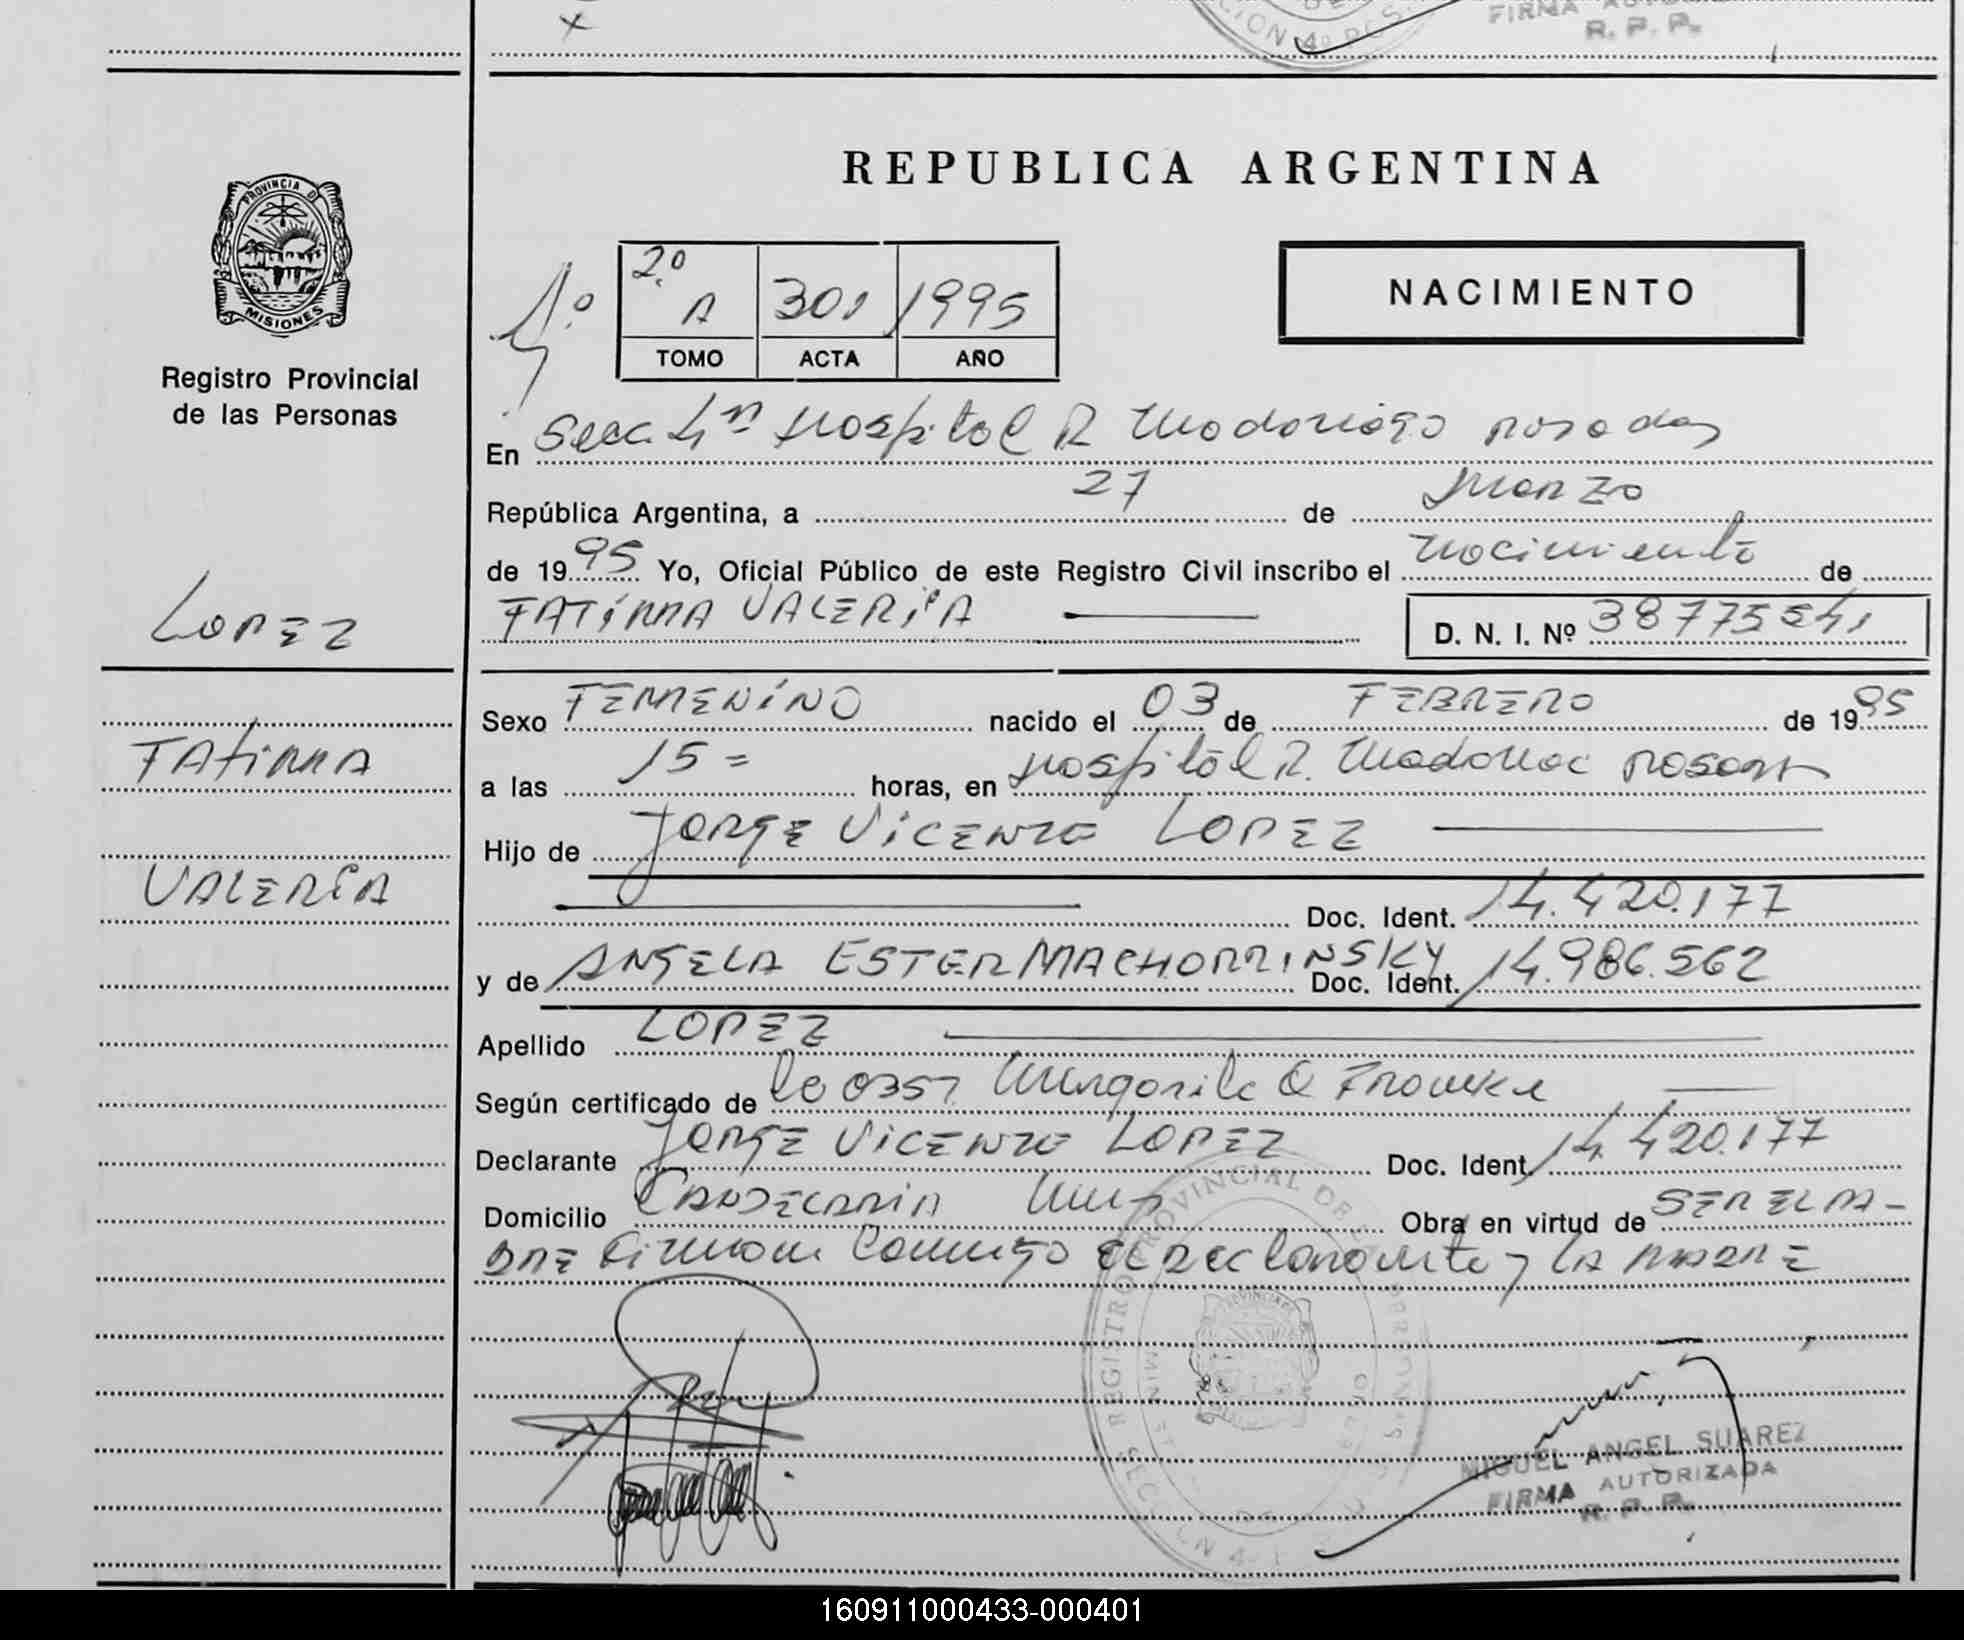 FIRMA
R. P. P.
REPUBLICA ARGENTINA
PROVINCIA D
MISIONES
Registro Provincial
de las Personas
2º
A 301 1995
TOMO ACTA AÑO
NACIMIENTO
En Secc. 4ta Hospital R Madariaga Posadas
República Argentina, a 27 de Marzo
de 1995 Yo, Oficial Público de este Registro Civil inscribo el nacimiento de
FATIMA VALERIA D. N. I. Nº 38775541
LOPEZ
FATIMA
VALERIA
Sexo FEMENINO nacido el 03 de FEBRERO de 1995
a las 15= horas, en Hospital R.
Hijo de JORGE VICENTE LOPEZ
Doc. Ident. 14.420.177
y de ANGELA ESTER MACHORRINSKY Doc. Ident. 14.986.562
Apellido LOPEZ
Según certificado de Margarita
Declarante JORGE VICENTE LOPEZ Doc. Ident. 14.420.177
Domicilio CANDELARIA Mnes Obra en virtud de SER EL PA-
DRE Firman Conmigo el declarante y LA MADRE
REGISTRO PROVINCIAL DE
SECCION 4
MIGUEL ANGEL SUAREZ
FIRMA AUTORIZADA
R. P. P.
160911000433-000401